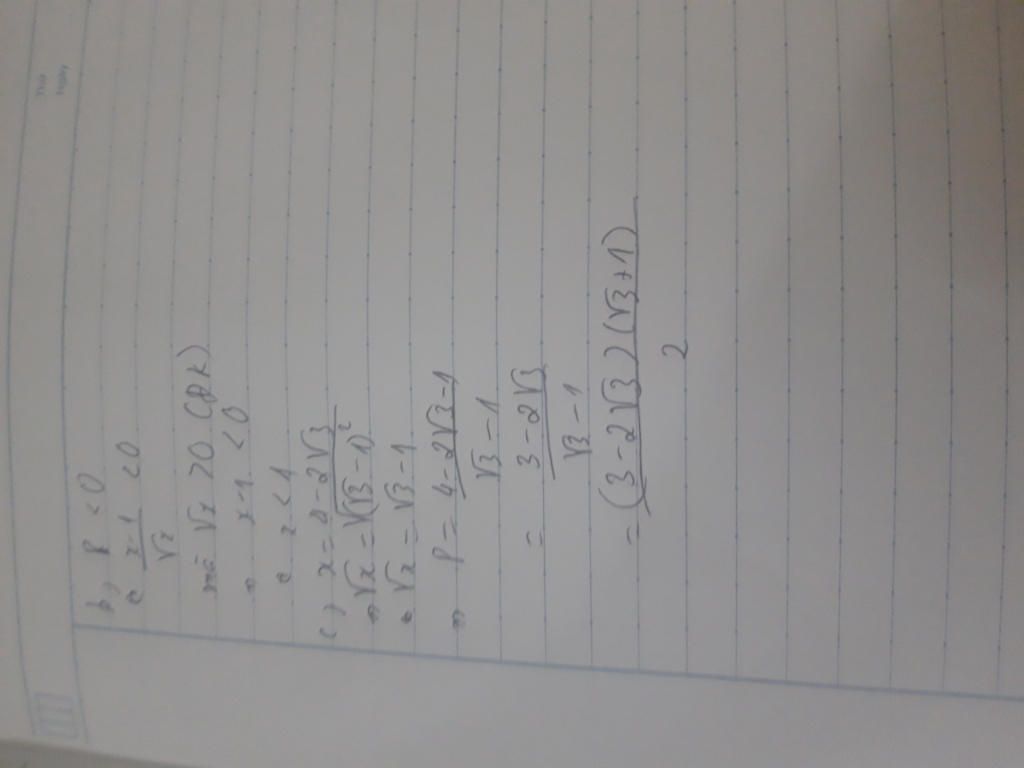 b) P < 0
x-1/√x < 0
mà √x > 0 (ĐK)
x-1 < 0
x < 1
c) x = 4 - 2√3
√x = √(√3-1)²
√x = √3-1
P = 4-2√3-1/√3-1
= 3-2√3/√3-1
= (3-2√3)(√3+1)/2